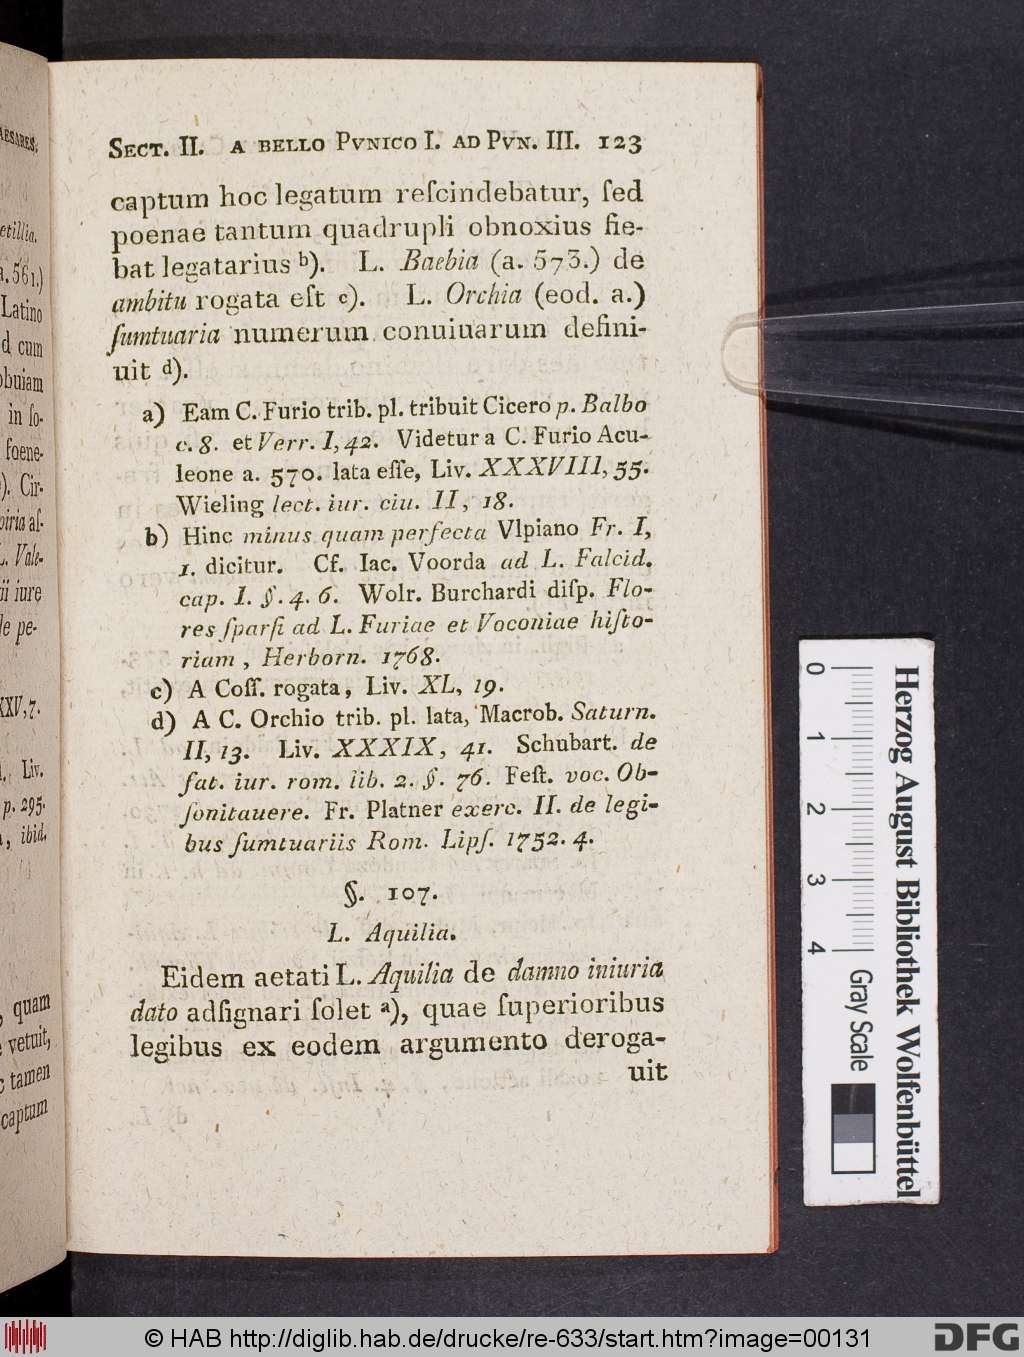 AESARES.
etillia.
a. 561.)
Latino
d cum
obuiam
in ſo-
foene-
). Cir-
piria aſ-
L. Vale-
ii iure
le pe-
XXV, 7.
Liv.
p. 295.
, ibid.
, quam
vetuit,
c tamen
captum
SECT. II. A BELLO PVNICO I. AD PVN. III. 123
captum hoc legatum reſcindebatur, ſed
poenae tantum quadrupli obnoxius fie-
bat legatarius b). L. Baebia (a. 573.) de
ambitu rogata eſt c). L. Orchia (eod. a.)
ſumtuaria numerum conuiuarum defini-
uit d).
a) Eam C. Furio trib. pl. tribuit Cicero p. Balbo
c. 8. et Verr. I, 42. Videtur a C. Furio Acu-
leone a. 570. lata eſſe, Liv. XXXVIII, 55.
Wieling lect. iur. ciu. II, 18.
b) Hinc minus quam perfecta Vlpiano Fr. I,
1. dicitur. Cf. Iac. Voorda ad L. Falcid.
cap. I. §. 4. 6. Wolr. Burchardi diſp. Flo-
res ſparſi ad L. Furiae et Voconiae hiſto-
riam, Herborn. 1768.
c) A Coſſ. rogata, Liv. XL, 19.
d) A C. Orchio trib. pl. lata, Macrob. Saturn.
II, 13. Liv. XXXIX, 41. Schubart. de
fat. iur. rom. lib. 2. §. 76. Feſt. voc. Ob-
ſonitauere. Fr. Platner exerc. II. de legi-
bus ſumtuariis Rom. Lipſ. 1752. 4.
§. 107.
L. Aquilia.
Eidem aetati L. Aquilia de damno iniuria
dato adſignari ſolet a), quae ſuperioribus
legibus ex eodem argumento deroga-
uit
0 1 2 3 4
Gray Scale
Herzog August Bibliothek Wolfenbüttel
© HAB http://diglib.hab.de/drucke/re-633/start.htm?image=00131
DFG